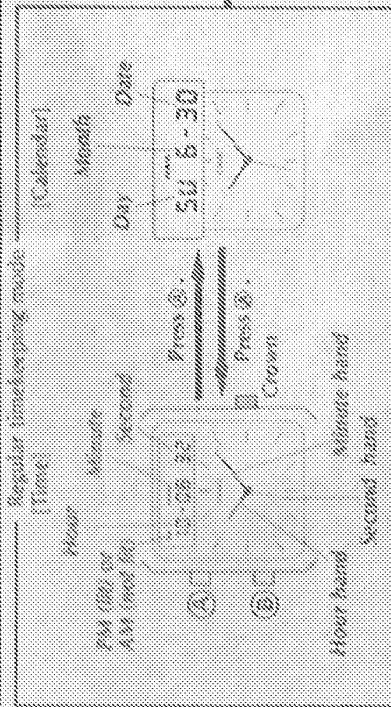 Regular timekeeping mode
[Time]
Hour
Minute
Second
PM (lit) or
AM (not lit)
10-08 32
A
B
Hour hand
Second hand
Minute hand
Crown
Press A.
Press B.
[Calendar]
Day
Month
Date
SU 6-30